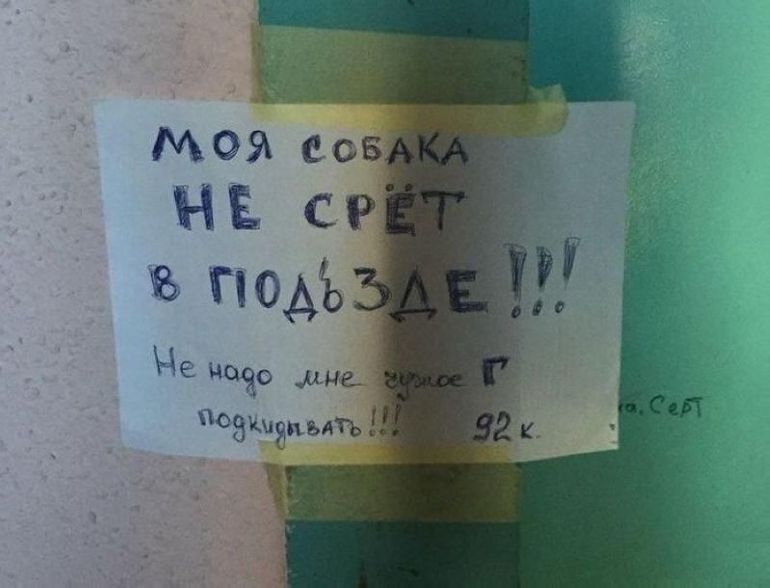 МОЯ СОБАКА
НЕ СРЁТ
В ПОДЪЗДЕ!!!
Не надо мне чужое Г
подкидывать!!!
92 к.